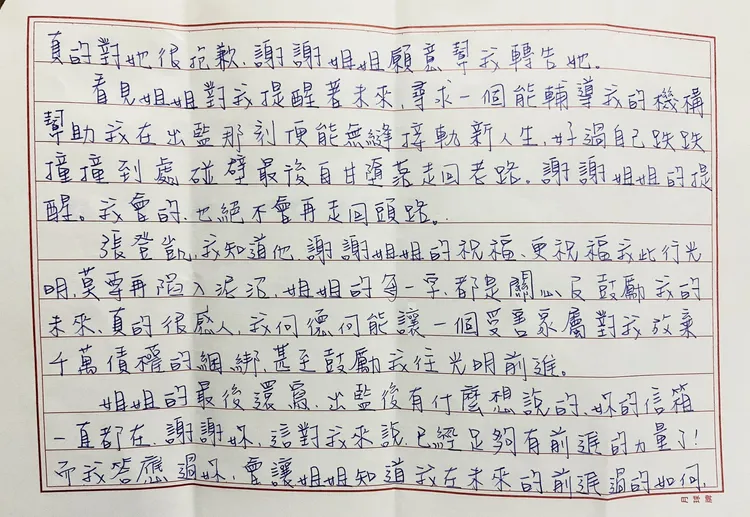 真的對她很抱歉、謝謝姐姐願意幫我轉告她。
看見姐姐對我提醒著未來，尋求一個能輔導我的機構
幫助我在出監那刻便能無縫接軌新人生，好過自己跌跌
撞撞到處碰壁最後自甘墮落走回老路。謝謝姐姐的提
醒。我會的、也絕不會再走回頭路。
張登凱，我知道他，謝謝姐姐的祝福、更祝福我此行光
明，莫要再陷入泥沼，姐姐的每一字，都是關心及鼓勵我的
未來、真的很感人，我何德何能讓一個受害家屬對我放棄
千萬債權的綑綁、甚至鼓勵我往光明前進。
姐姐的最後還寫、出監後有什麼想說的、妳的信箱
一直都在、謝謝妳，這對我來說、已經足夠有前進的力量了！
而我答應過妳，會讓姐姐知道我在未來的前進過的如何，